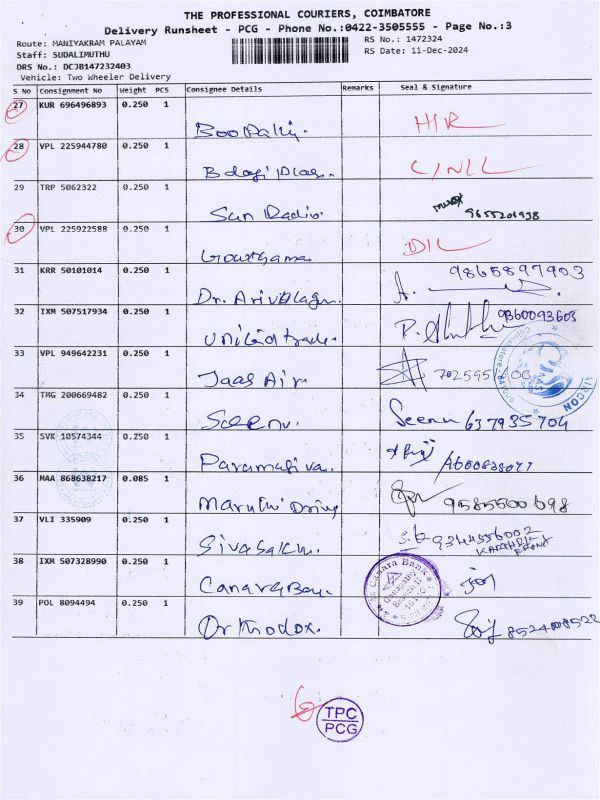 THE PROFESSIONAL COURIERS, COIMBATORE
Delivery Runsheet - PCG - Phone No.:0422-3505555 - Page No.:3
Route: MANIYAKRAM PALAYAM
RS No.: 1472324
Staff: SUDALIMUTHU
RS Date: 11-Dec-2024
DRS No.: DCJB147232403
Vehicle: Two Wheeler Delivery
S No Consignment No Weight PCS Consignee Details Remarks Seal & Signature
27 KUR 696496893 0.250 1
28 VPL 225944780 0.250 1
29 TRP 5062322 0.250 1
Sun Radio.
9655201938
30 VPL 225922588 0.250 1
Gowthama
31 KRR 50101014 0.250 1
Dr. Arivalagan. A. 9865897903
32 IXM 507517934 0.250 1
United trade. 9360093603
33 VPL 949642231 0.250 1
Jaas Air
34 TMG 200669482 0.250 1
Seenu. Seenu 637935704
35 SVK 10574344 0.250 1
Paramasiva.
36 MAA 868638217 0.085 1
Maruthi Driving 9585500698
37 VLI 335909 0.250 1
Sivasakthi. 9344556002
KARTHIK
38 IXM 507328990 0.250 1
Canara Ban.
Canara Bank
39 POL 8094494 0.250 1
Orthodox.
TPC
PCG